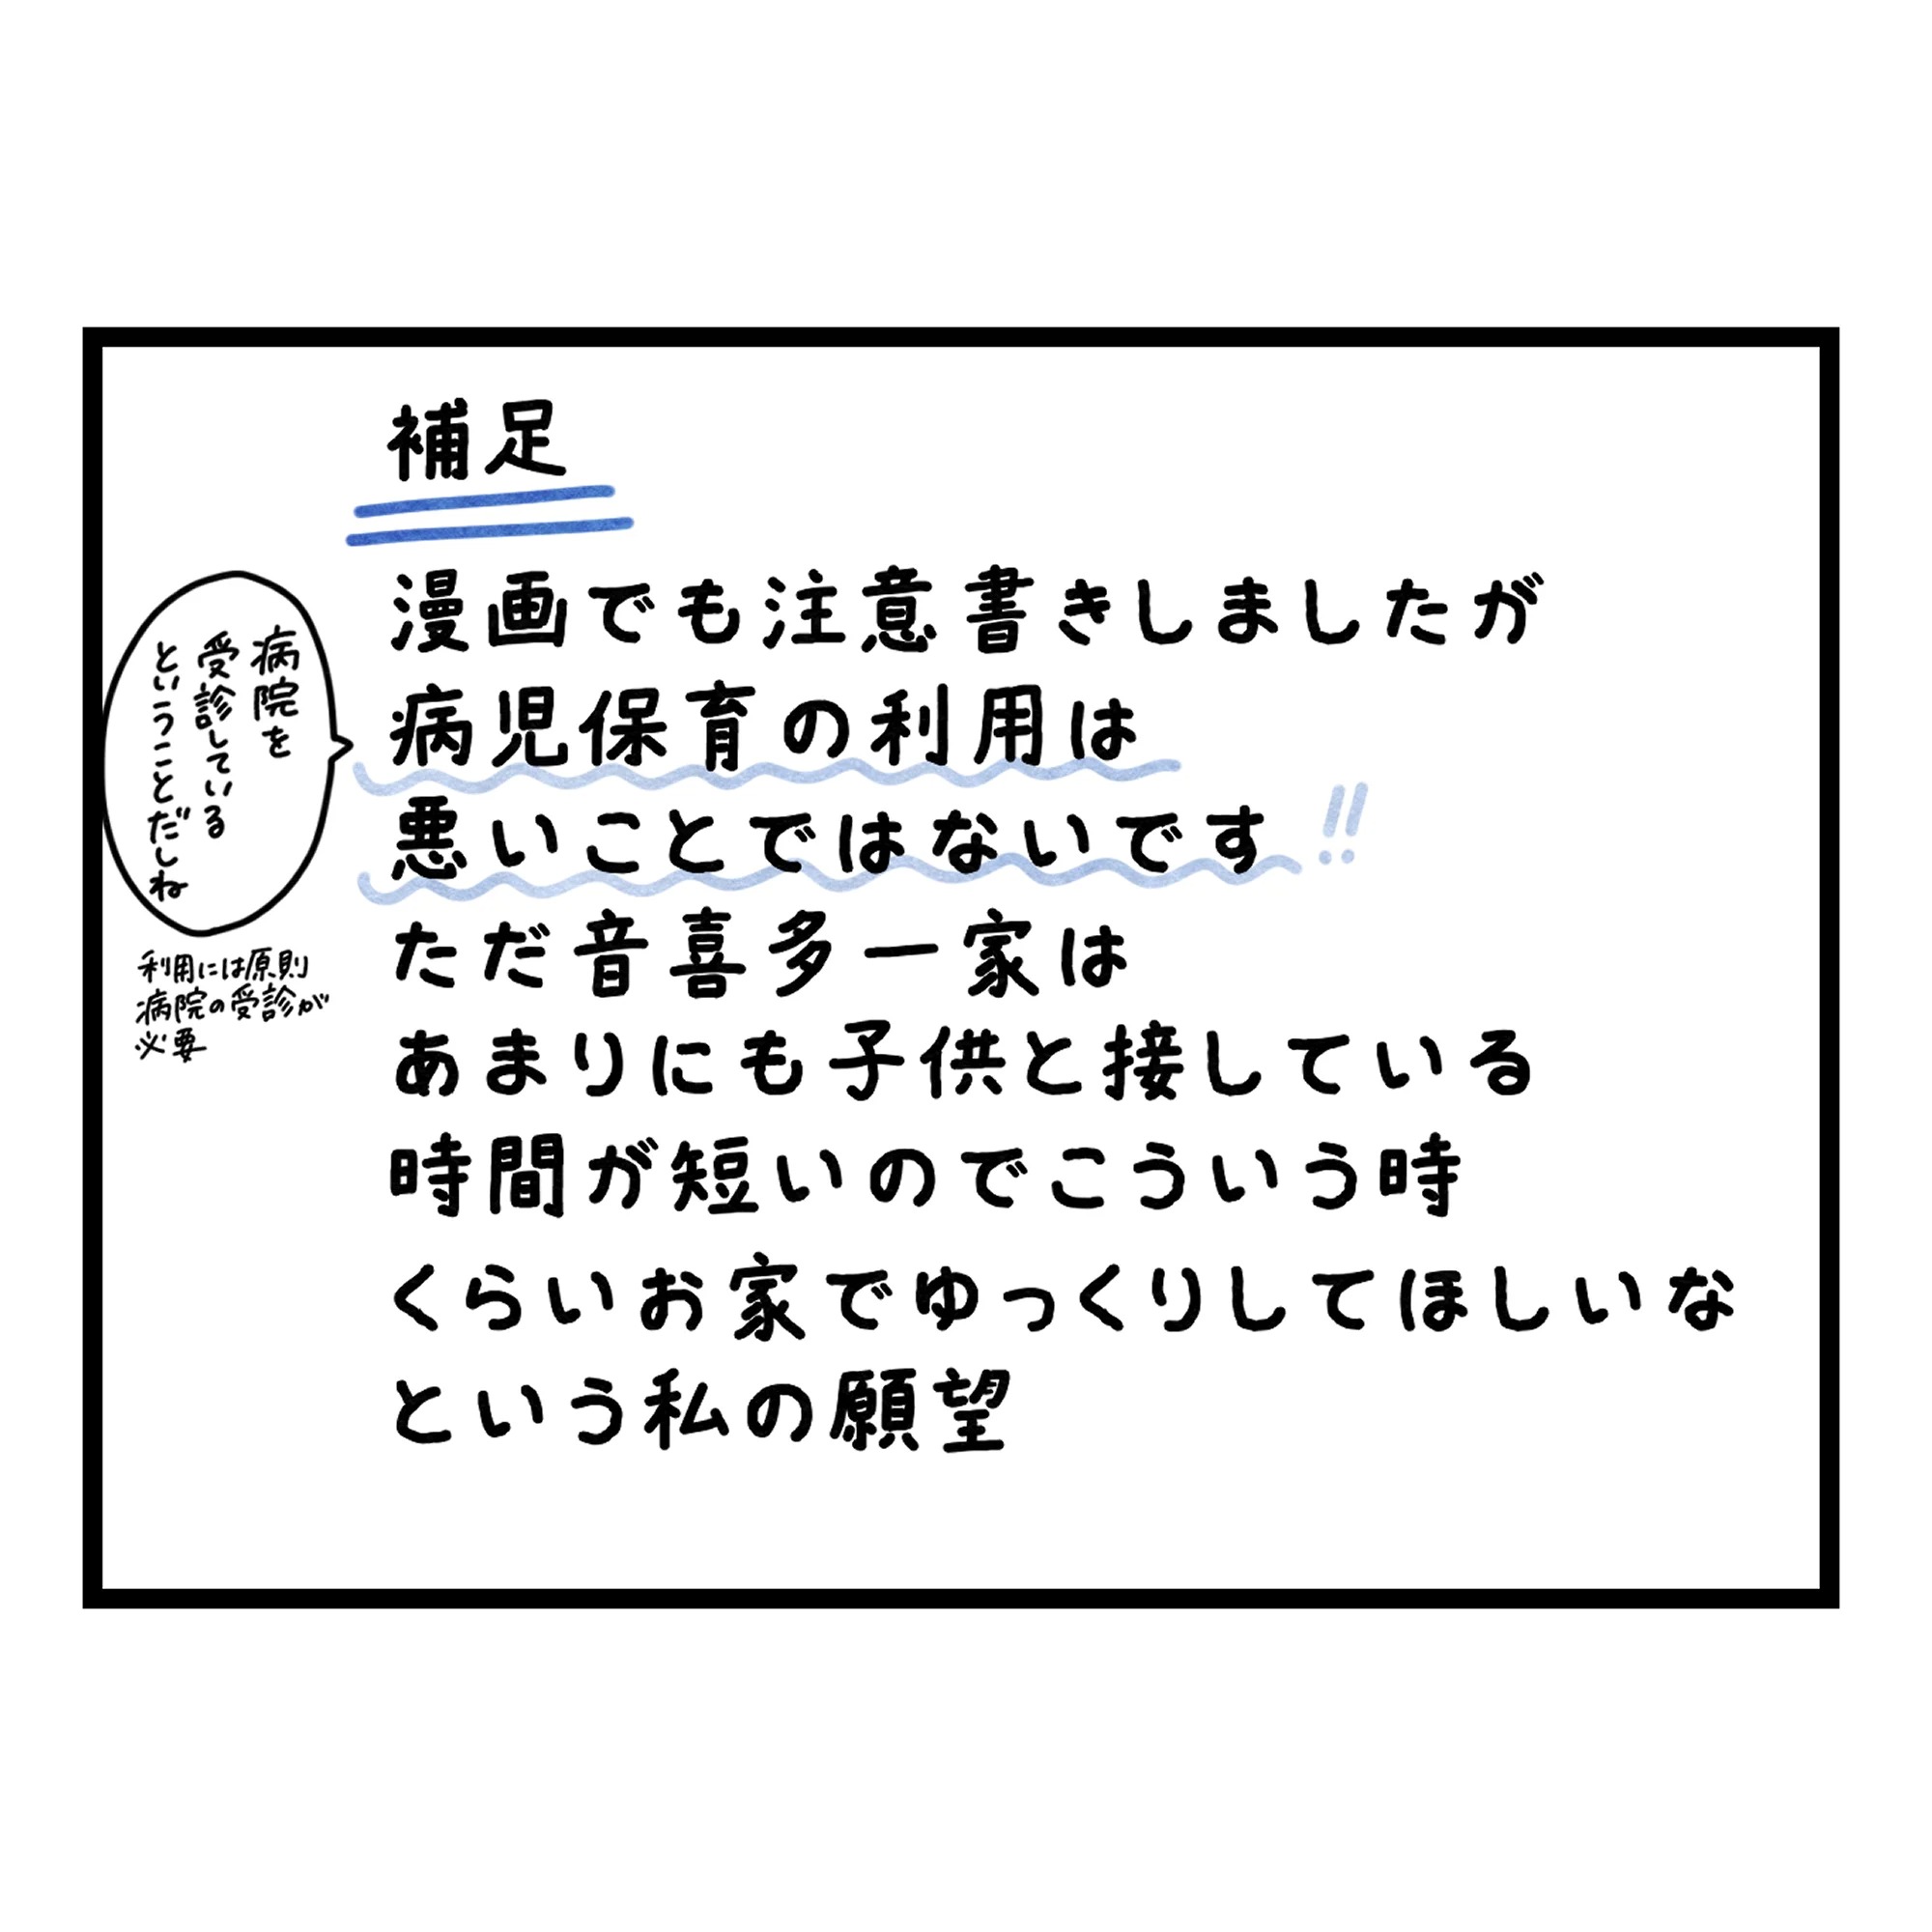 補足
漫画でも注意書きしましたが
病児保育の利用は
悪いことではないです!!
ただ音喜多一家は
あまりにも子供と接している
時間が短いのでこういう時
くらいお家でゆっくりしてほしいな
という私の願望
病院を
受診している
ということだしね
利用には原則
病院の受診が
必要